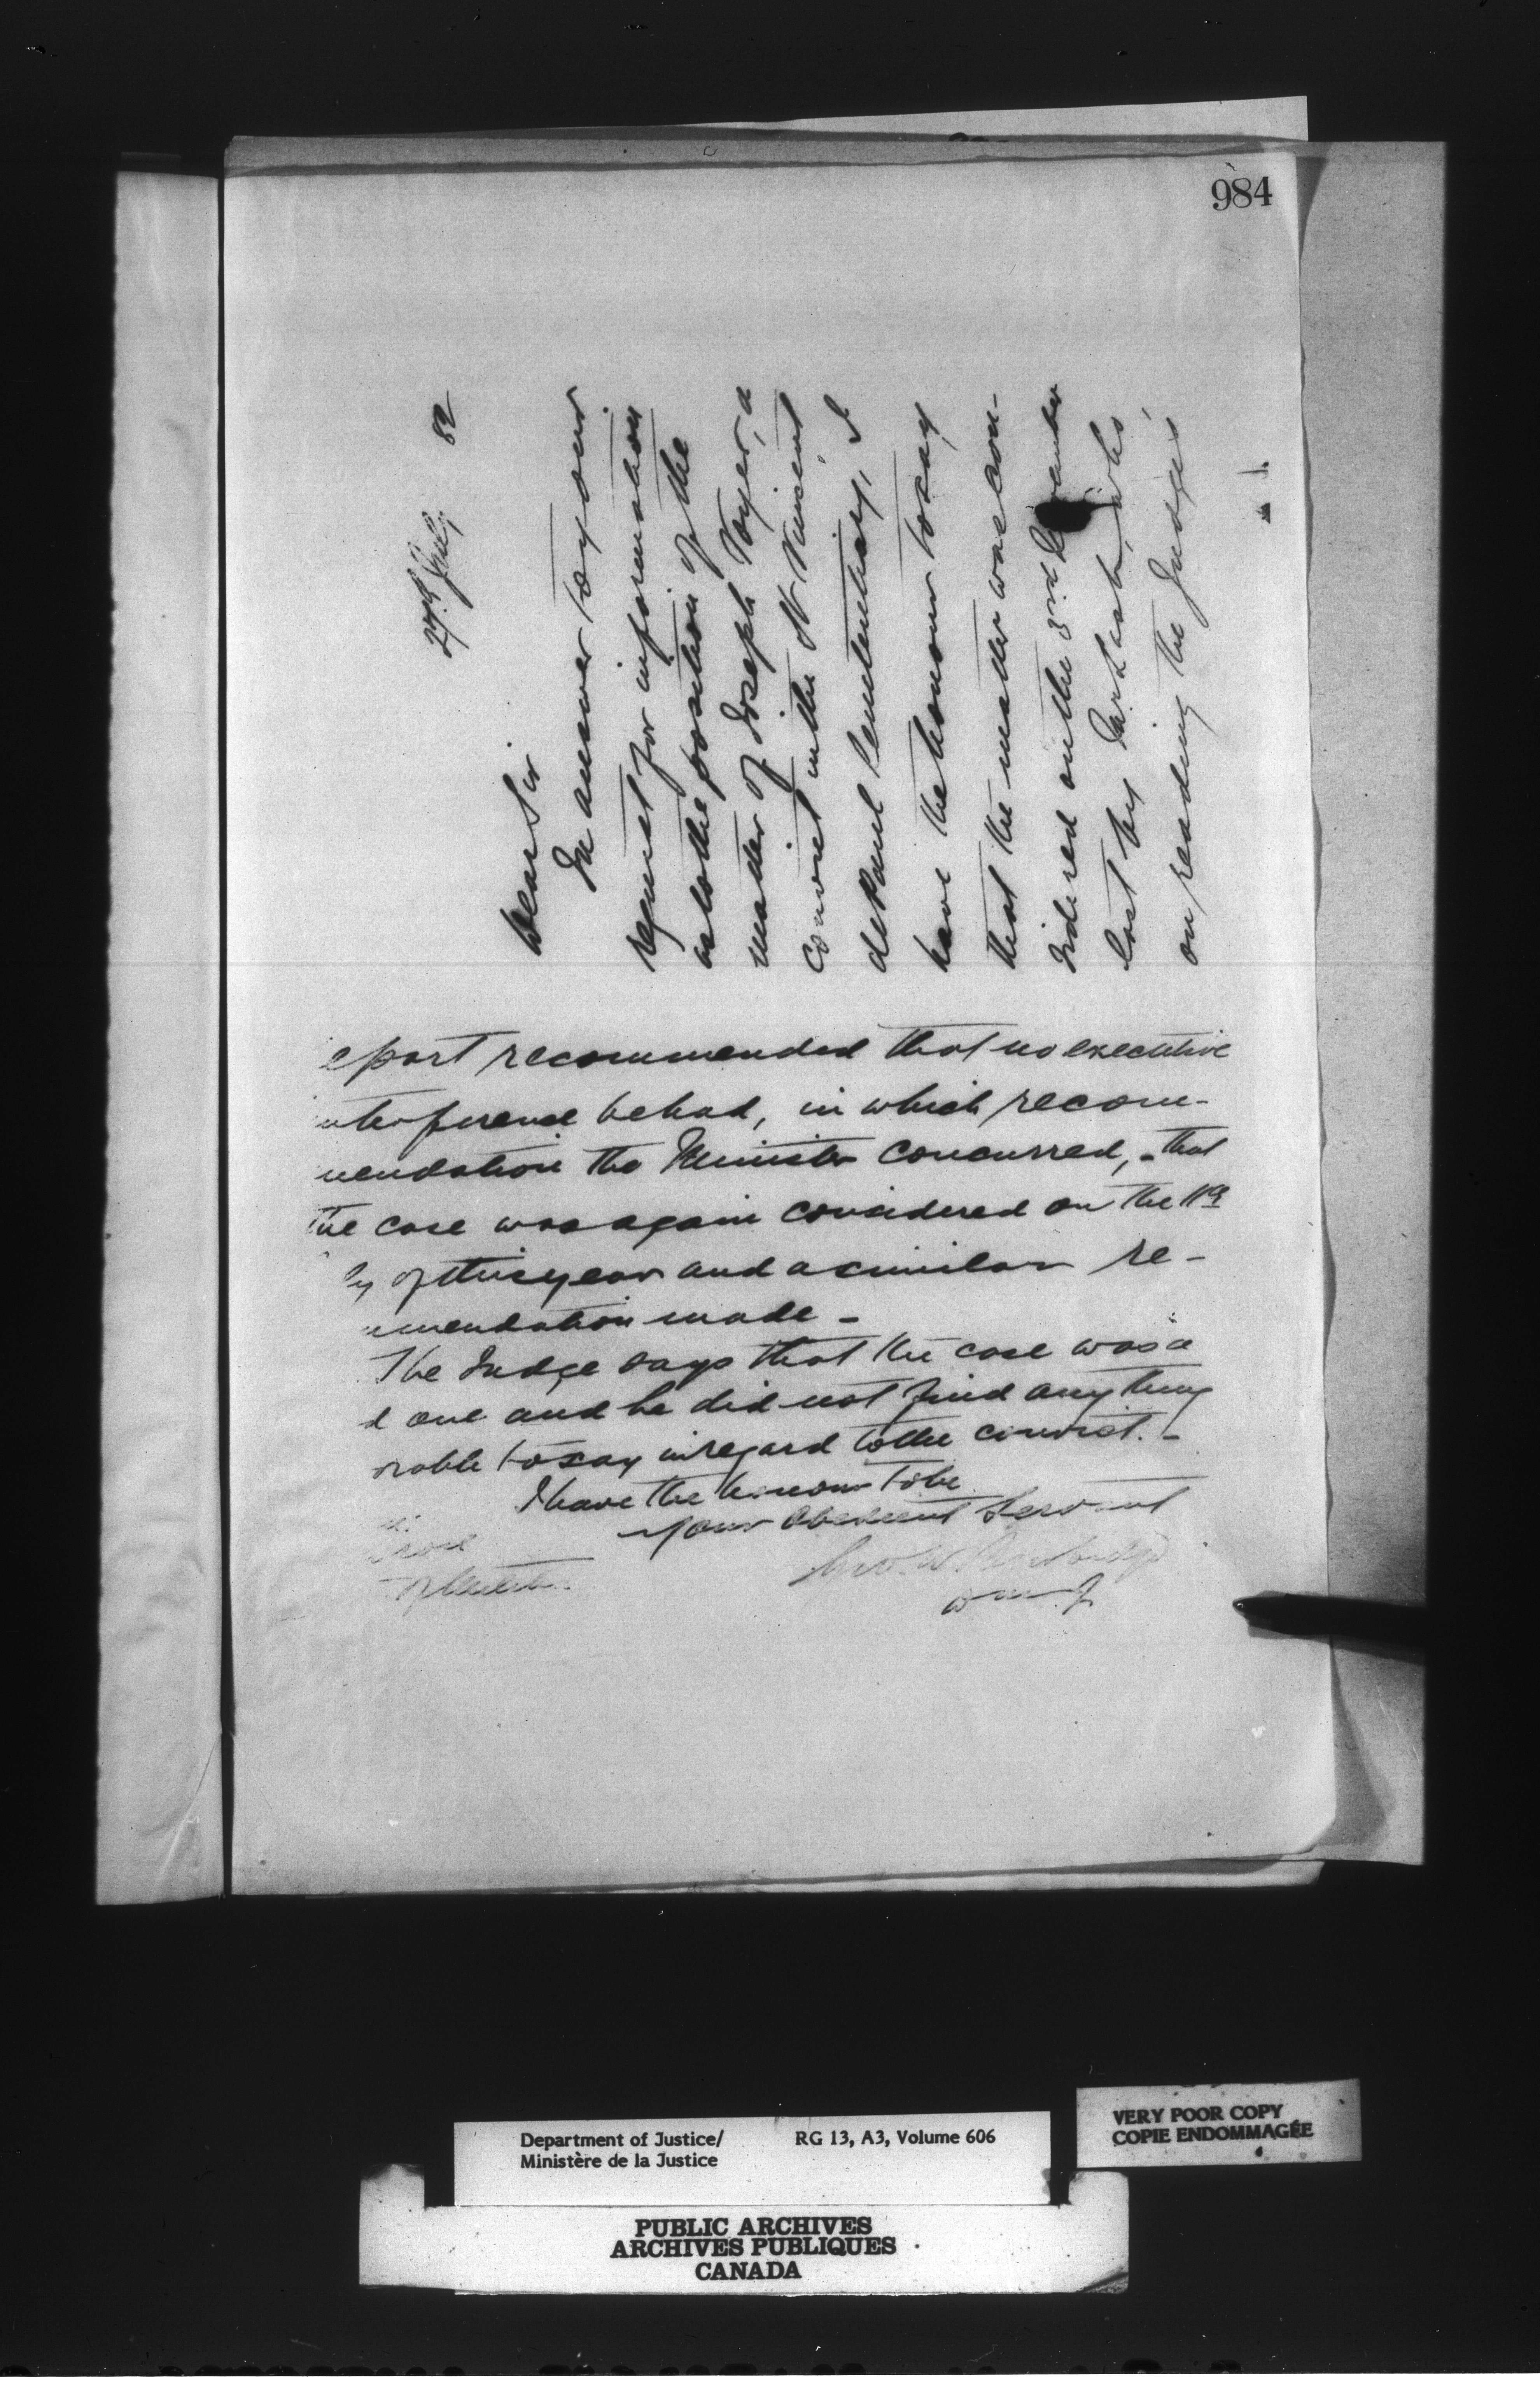 984
27th July 82
Dear Sir
In answer to your
request for information
as to the position of the
matter of Joseph Voyer, a
convict in the St Vincent
de Paul Penitentiary, I
have the honour to say
that the matter was con-
sidered on the 3rd December
last by Mr Lash, who
on reading the Judge's
eport recommended that no executive
nterference be had, in which recom-
mendation the Minister concurred, - that
the case was again considered on the 11th
ly of this year and a similar re-
mmendation made -
The Judge says that the case was a
d one and he did not find anything
orable to say in regard to the convict. -
I have the honour to be
Your Obedient Servant
Geo. W. Burbidge
D M J
Department of Justice/ RG 13, A3, Volume 606
Ministère de la Justice
VERY POOR COPY
COPIE ENDOMMAGÉE
PUBLIC ARCHIVES
ARCHIVES PUBLIQUES
CANADA